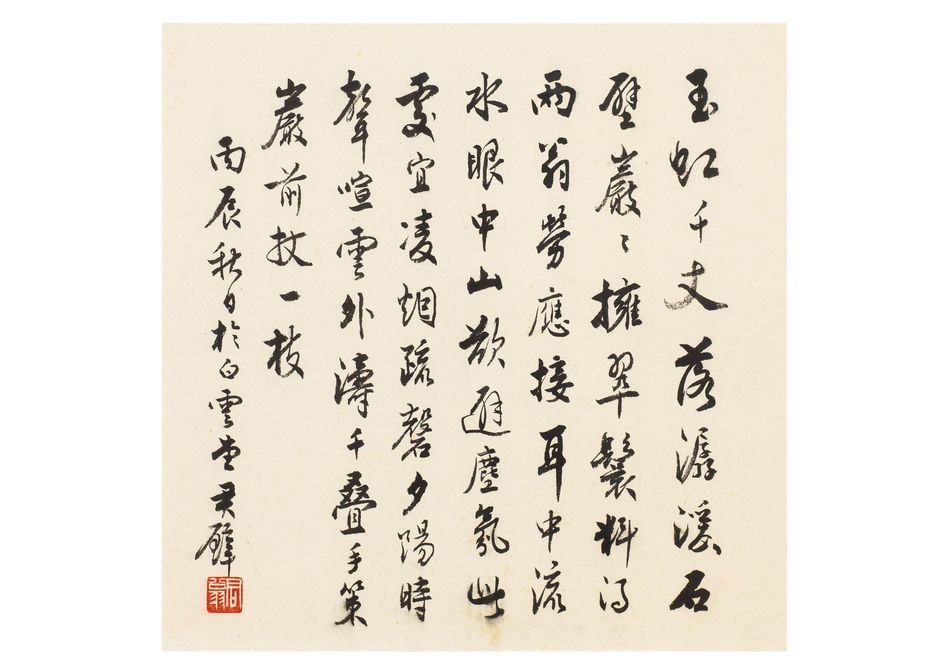 玉虹千丈落潺湲石
壁巖〻擁翠鬟料得
兩翁勞應接耳中流
水眼中山欲避塵氛此
處宜凌烟疏磬夕陽時
聲喧雲外濤千疊手策
巖前杖一枝
丙辰秋日於白雲堂君璧
君翁